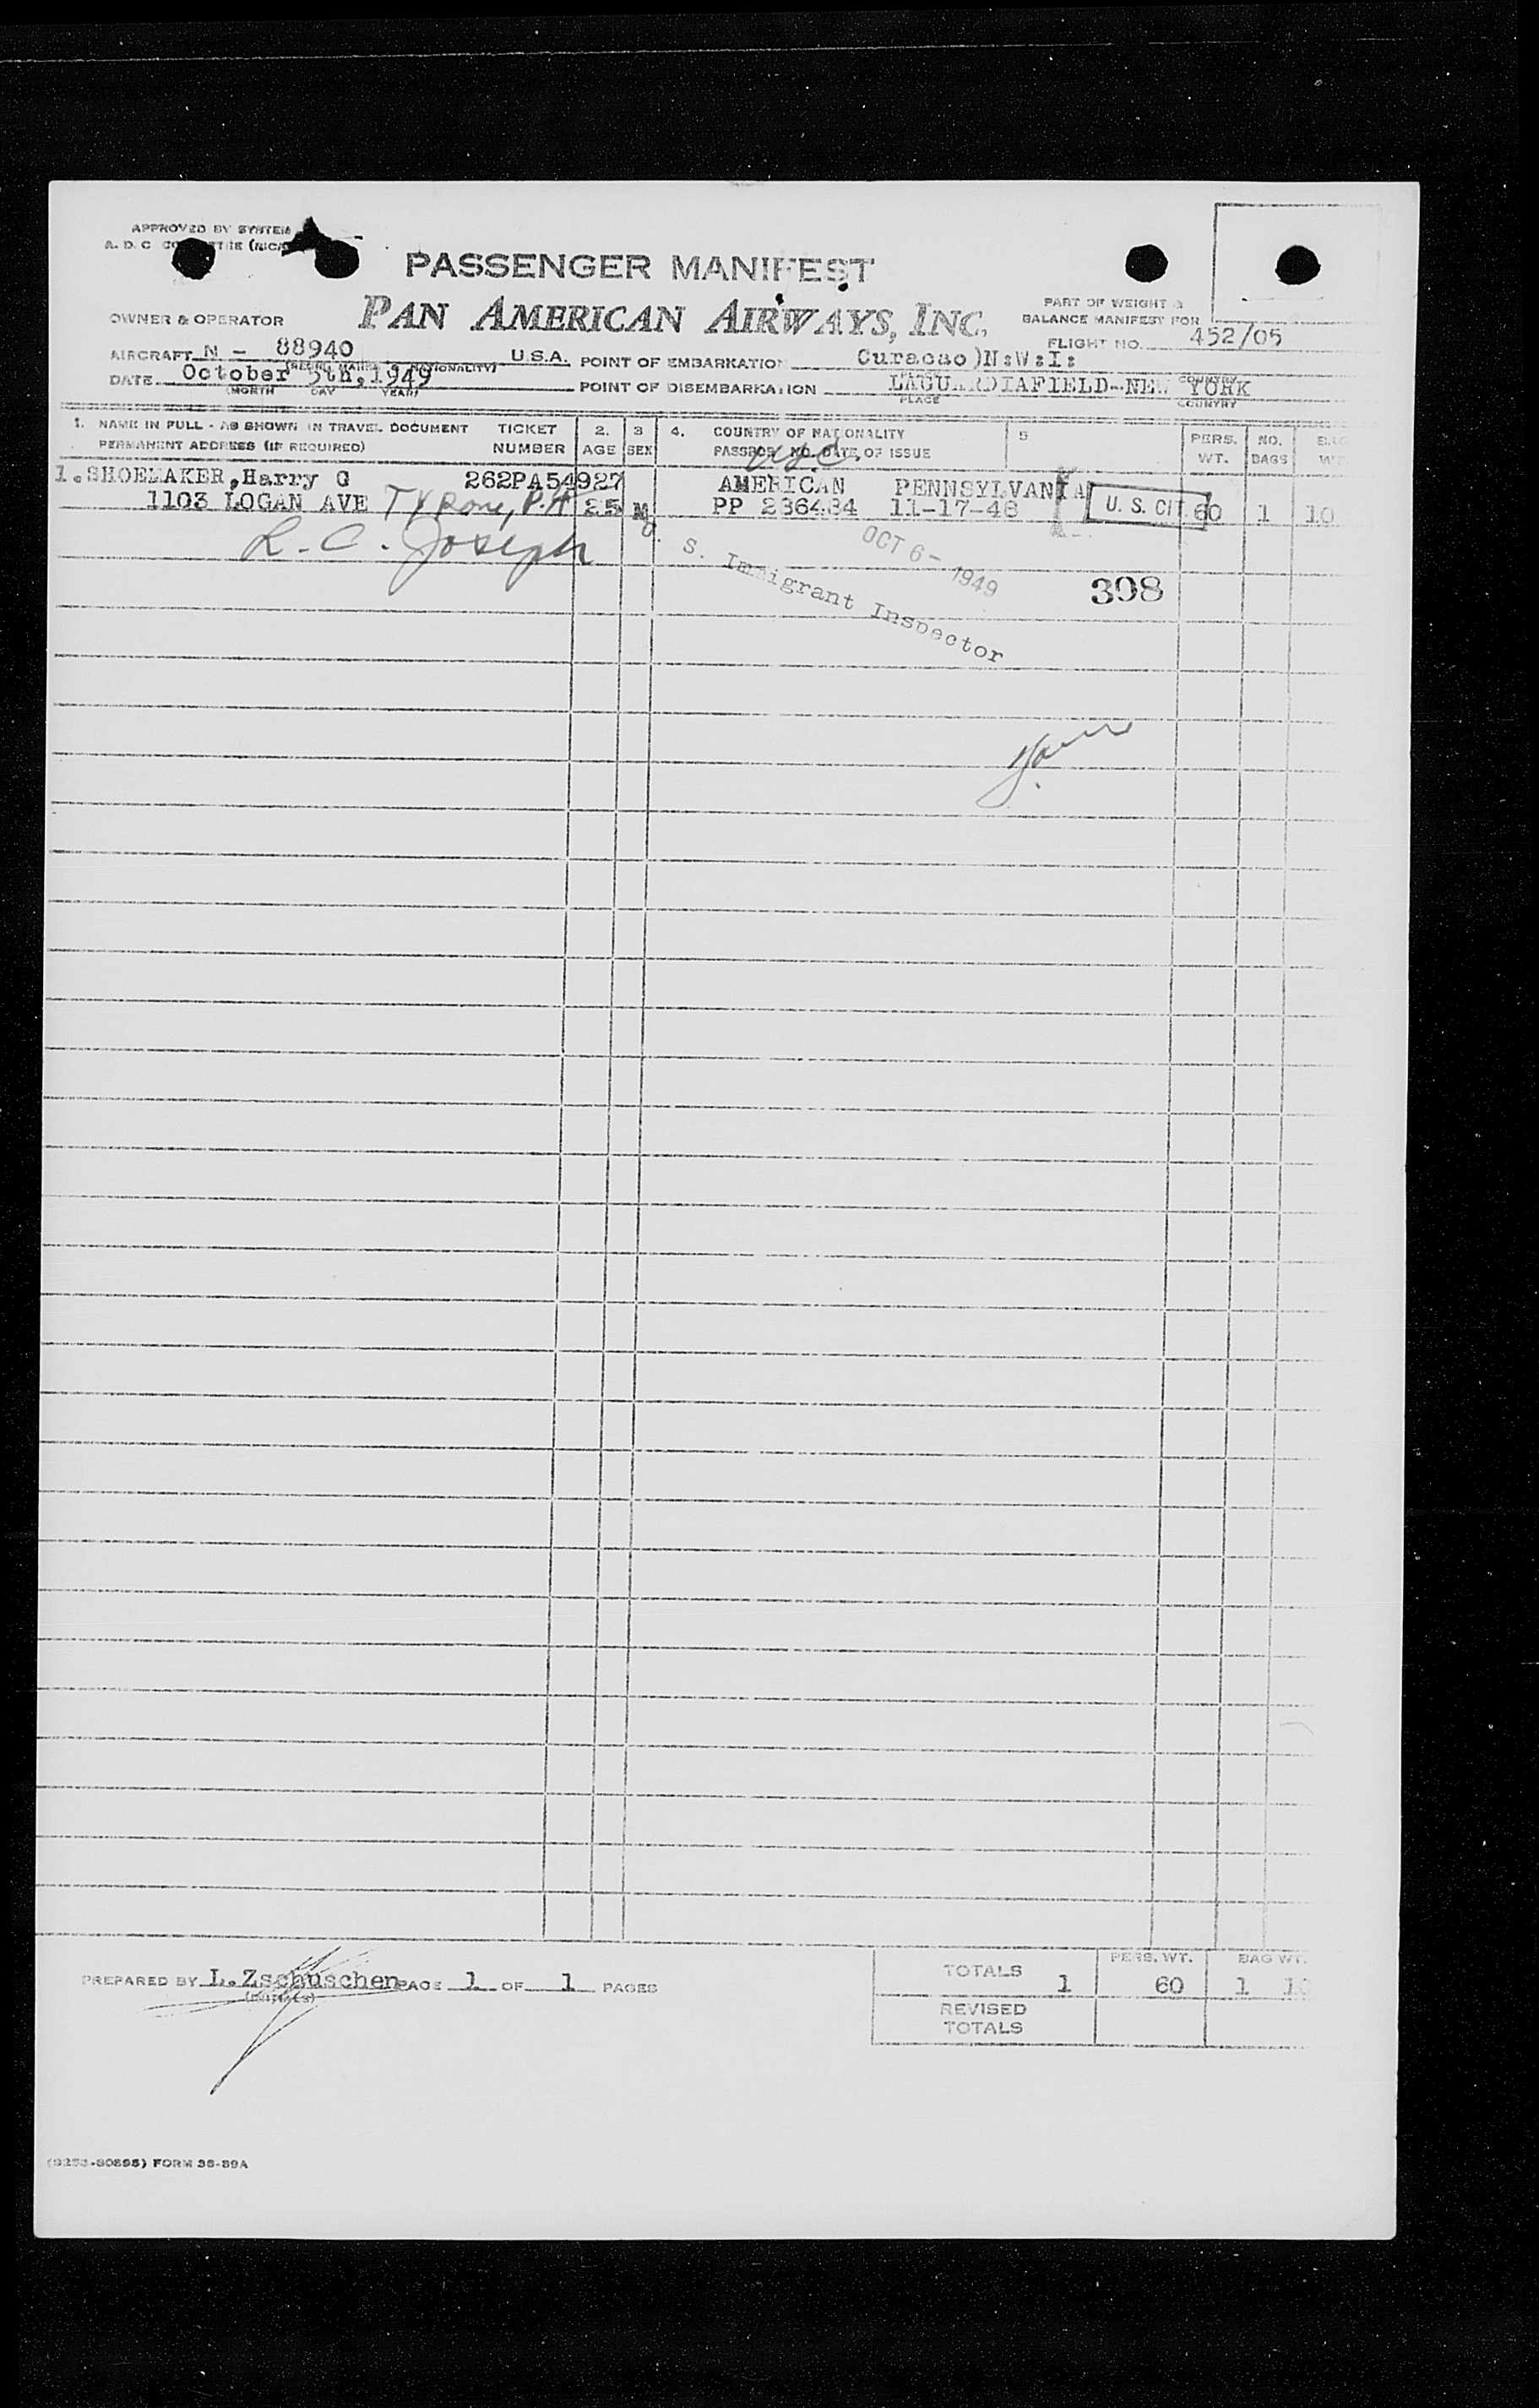 APPROVED BY SYSTEM
A. D. C
PASSENGER MANIFEST
OWNER & OPERATOR
PAN AMERICAN AIRWAYS, INC.
PART OF WEIGHT &
BALANCE MANIFEST FOR
FLIGHT NO. 452/05
AIRCRAFT N - 88940 U.S.A. POINT OF EMBARKATION Curacao )N:W:I:
DATE October 5th, 1949 POINT OF DISEMBARKATION LAGUARDIAFIELD-NEW YORK
MONTH DAY YEAR PLACE COUNTRY
1. NAME IN FULL - AS SHOWN IN TRAVEL DOCUMENT TICKET 2. 3 4. COUNTRY OF NATIONALITY 5 PERS. NO.
PERMANENT ADDRESS (IF REQUIRED) NUMBER AGE SEX PASSPORT NO. DATE OF ISSUE WT. BAGS
USC.
1. SHOEMAKER, Harry G 262PA54927 AMERICAN PENNSYLVANIA
1103 LOGAN AVE TYRONE, P.A 25 M PP 286484 11-17-48 U. S. CIT 60 1 10
L. C. Joseph
U. S. Immigrant Inspector
OCT 6 - 1949
398
PREPARED BY L. Zschuschen PAGE 1 OF 1 PAGES
PERS. WT. BAG WT.
TOTALS 1 60 1 10
REVISED
TOTALS
FORM 36-89A